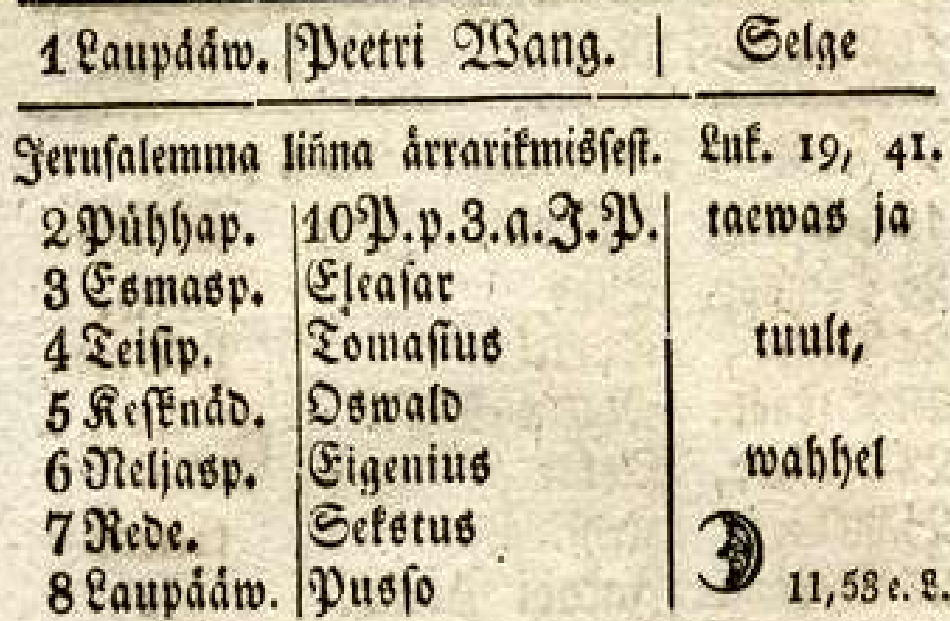 1 Laupääw. Peetri Wang. Selge
Jerusalemma liña ärrarikmissest. Luk. 19, 41.
2 Pühhap. 10 P. p. 3. a. J. P. taewas ja
3 Esmasp. Eleasar
4 Teisip. Tomasius tuult,
5 Keſknäd. Oswald
6 Neljasp. Eigenius wahhel
7 Rede. Sekstus
8 Laupääw. Pusso 11,53 e. L.